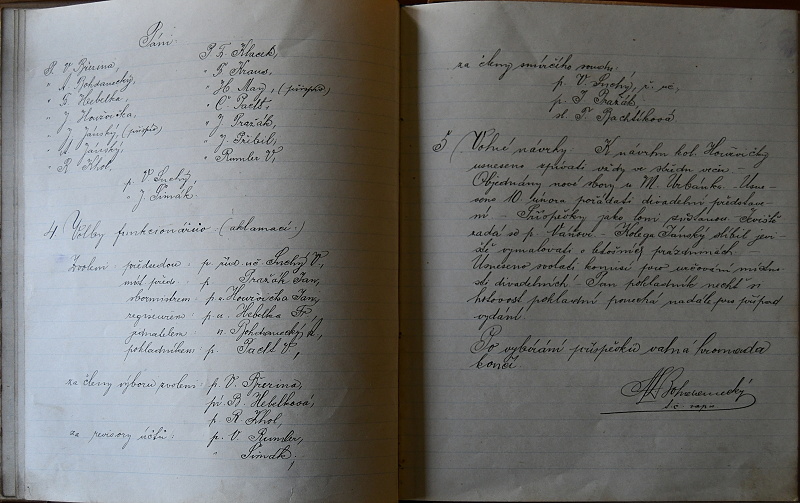 Páni:
P. V. Březina,
" A. Bohdanecký,
" F. Hebelka,
" J. Houžvička,
" J. Jánský, (přísp.)
" A. Jánský,
" R. Khol,
P. Z. Klacek,
" F. Kraus,
" H. May, (přísp.)
" O. Paclt,
" J. Pražák,
" J. Přibil,
" Rumler V,
p. V. Suchý,
" J. Šimák.
4. Volby funkcionářů (aklamací):
Zvolen: předsedou: p. říd. uč. Suchý V,
míst. před. p. Pražák Jan,
sbormistrem: p. u. Houžvička Jan,
regisseurem: p. u. Hebelka Fr,
jednatelem u. Bohdanecký A,
pokladníkem: p. Paclt V,
za členy výboru zvoleni: p. V. Březina,
pí. B. Hebelková,
p R. Khol,
za revisory účtů: p. V. Rumler,
" Šimák;
za členy smírčího soudu:
p. V. Suchý, ř. uč,
p. J. Pražák,
sl. F. Bachtíková
5 Volné návrhy: K návrhu kol. Houžvičky
usneseno zpívati vždy ve středu večer –
Objednány nové sbory u M. Urbánka. Usne-
seno 10. února pořádati divadelní představe-
ní – Příspěvky jako loni zůstanou.
řadá se p. Váňovi – Kolega Jánský slíbil jevi-
ště vymalovati o letošních prázdninách –
Usneseno svolati komisi pro určování místno-
stí divadelních – Pan pokladník nechť si
hotovost pokladní ponechá nadále pro případ
vydání.
Po vybírání příspěvků valná hromada
končí.
A Bohdanecký
t. č. zapis.